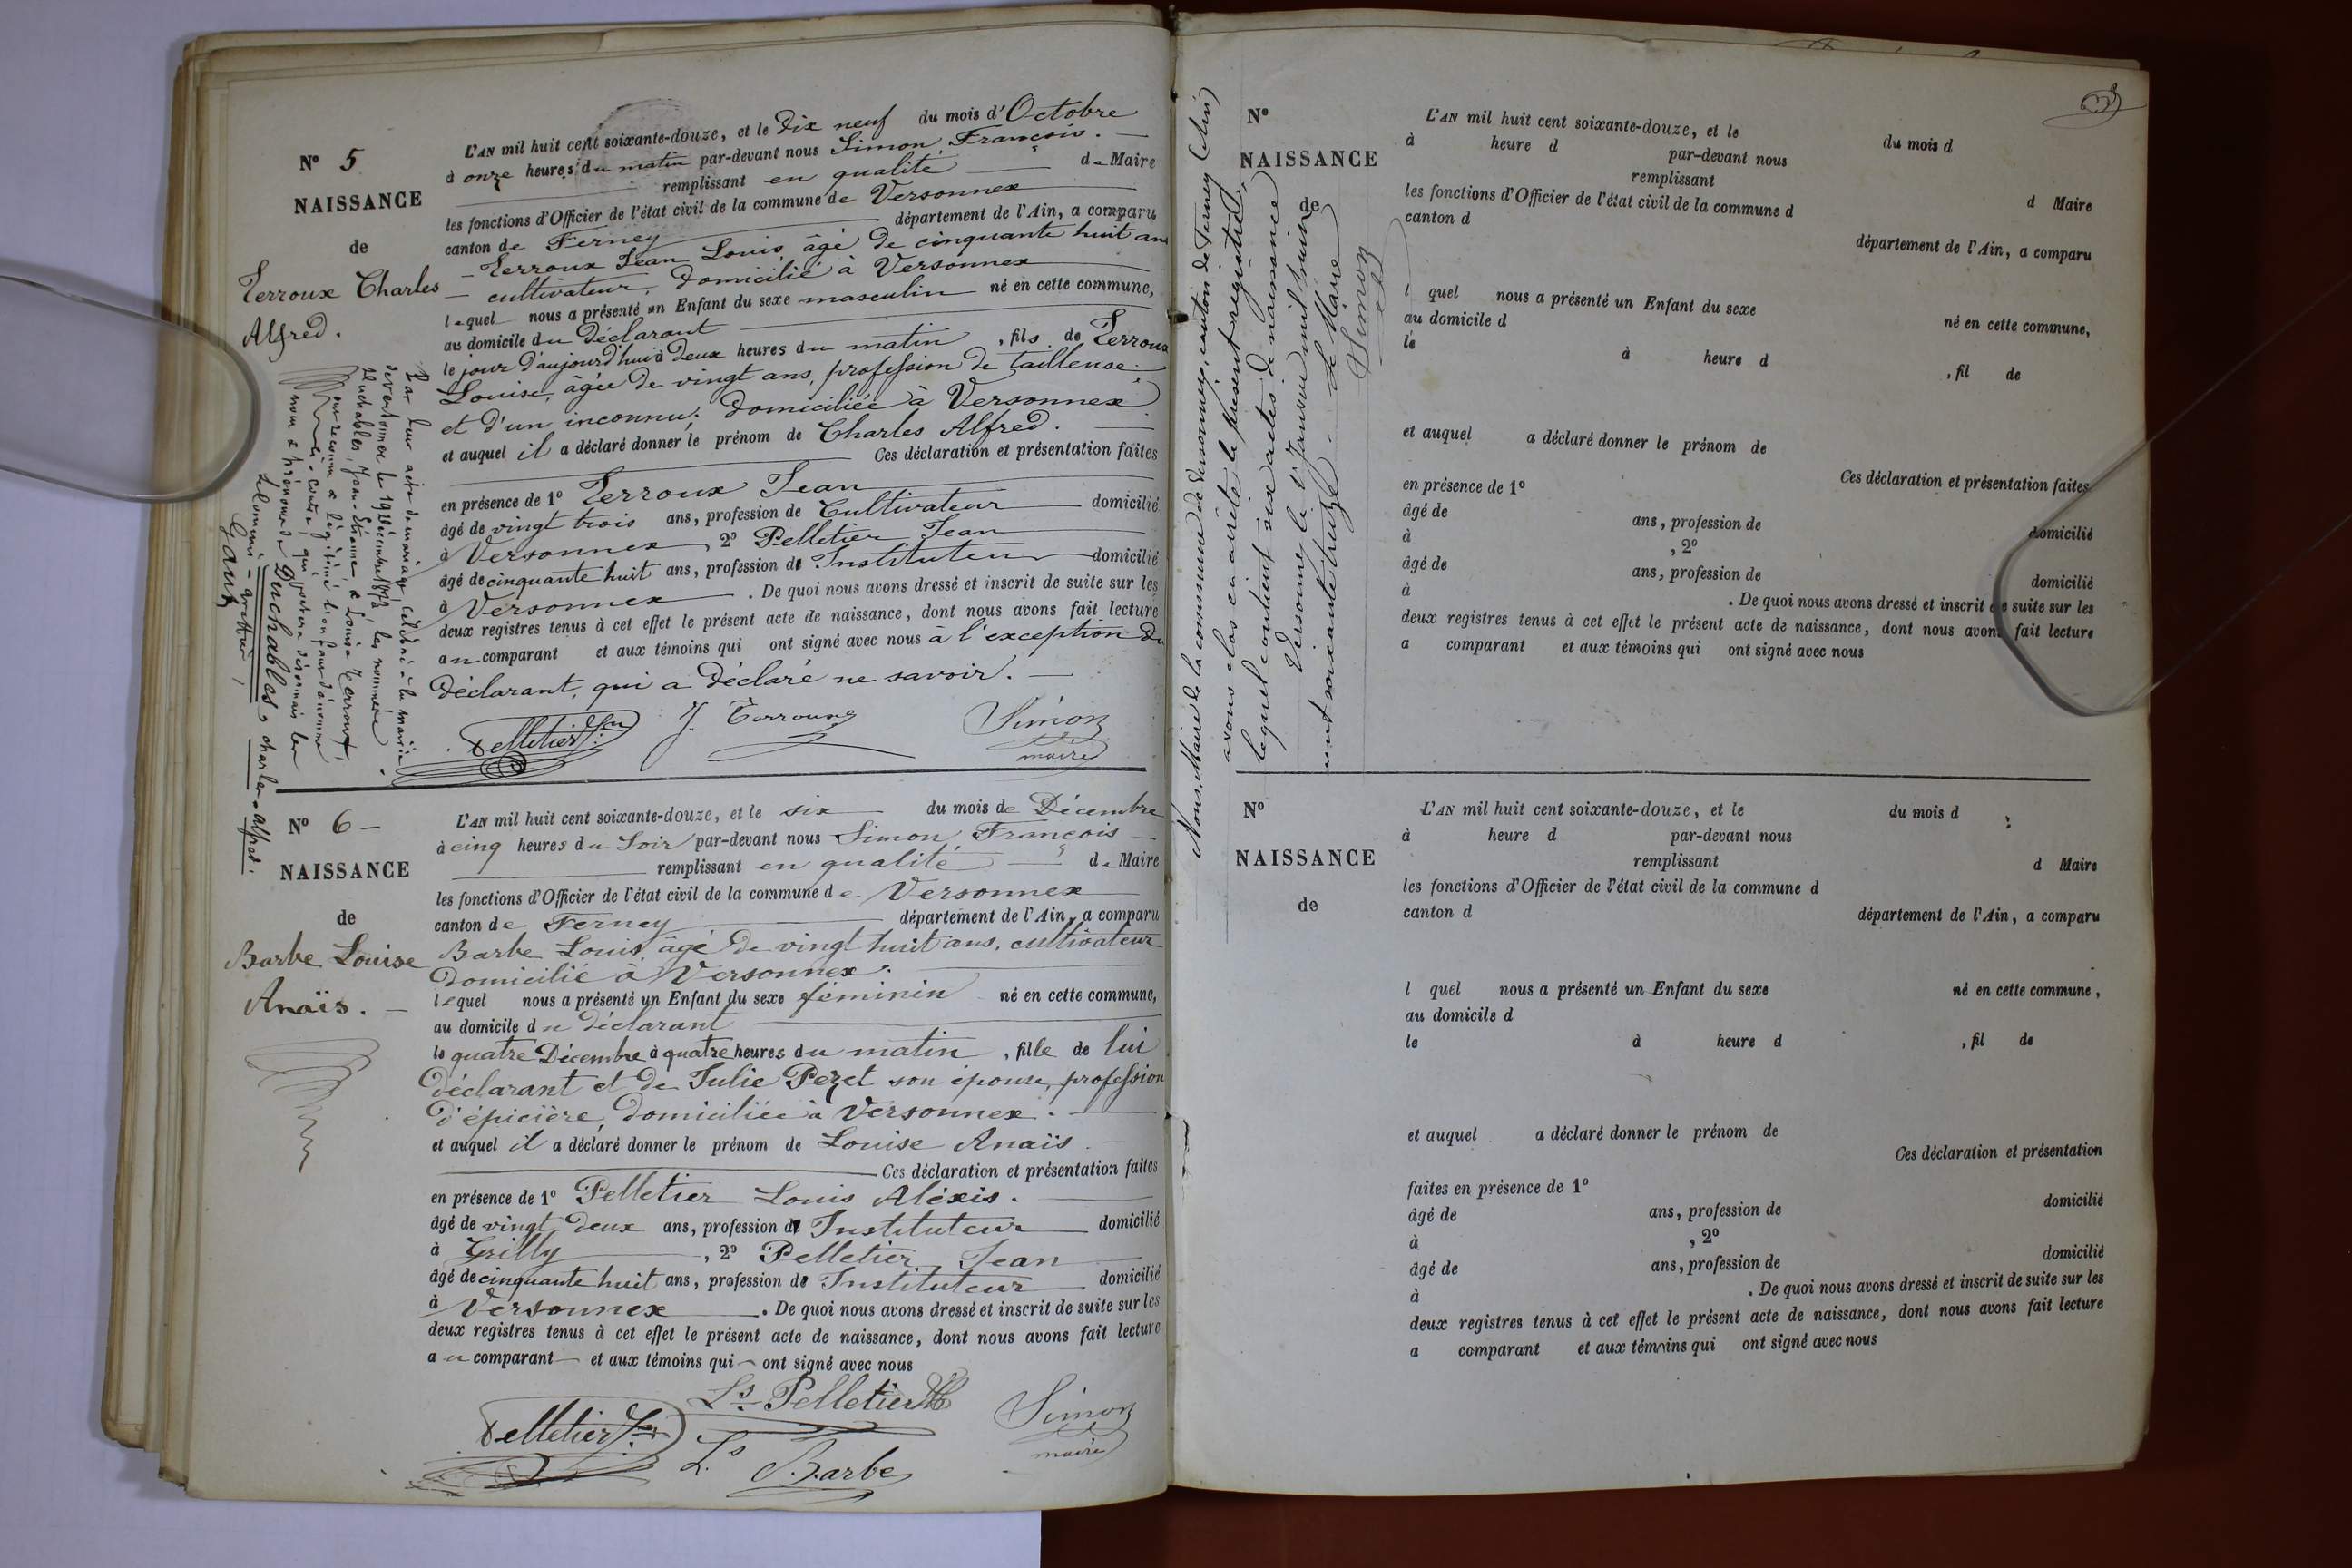 N° 5
NAISSANCE
de
Terroux Charles
Alfred.
L'AN mil huit cent soixante-douze, et le Dix neuf du mois d'Octobre
à onze heures du matin par-devant nous Simon François.
remplissant en qualité de Maire
les fonctions d'Officier de l'état civil de la commune de Versonnex
canton de Ferney département de l'Ain, a comparu
Terroux Jean Louis, âgé de cinquante huit ans
cultivateur, domicilié à Versonnex
lequel nous a présenté un Enfant du sexe masculin né en cette commune,
au domicile du Déclarant
le jour d'aujourd'hui à deux heures du matin, fils de Terroux
Louise, âgée de vingt ans, profession de tailleuse
et d'un inconnu, domiciliée à Versonnex
et auquel il a déclaré donner le prénom de Charles Alfred.
Ces déclaration et présentation faites
en présence de 1° Terroux Jean
âgé de vingt trois ans, profession de Cultivateur domicilié
à Versonnex, 2° Pelletier Jean
âgé de cinquante huit ans, profession de Instituteur domicilié
à Versonnex. De quoi nous avons dressé et inscrit de suite sur les
deux registres tenus à cet effet le présent acte de naissance, dont nous avons fait lecture
au comparant et aux témoins qui ont signé avec nous à l'exception du
Déclarant, qui a déclaré ne savoir.
Pelletier Jn J. Terroux Simon
maire
Par leur acte de mariage célébré à la mairie
de Versonnex le 19 décembre 1873 les nommés
Duchables, Jean-Etienne, & Louise Terroux,
ont reconnu & légitimé l'enfant dénommé
ci-contre, qui portera désormais les
nom & prénoms de Duchables, charles-alfred.
N° 6
NAISSANCE
de
Barbe Louise
Anaïs.
L'AN mil huit cent soixante-douze, et le six du mois de Décembre
à cinq heures du Soir par-devant nous Simon François
remplissant en qualité de Maire
les fonctions d'Officier de l'état civil de la commune de Versonnex
canton de Ferney département de l'Ain, a comparu
Barbe Louis, âgé de vingt huit ans, cultivateur
Domicilié à Versonnex.
lequel nous a présenté un Enfant du sexe féminin né en cette commune,
au domicile du déclarant
le quatre Décembre à quatre heures du matin, fille de lui
Déclarant et de Julie Pezet son épouse, profession
d'épicière, domiciliée à Versonnex.
et auquel il a déclaré donner le prénom de Louise Anaïs.
Ces déclaration et présentation faites
en présence de 1° Pelletier Louis Aléxis.
âgé de vingt deux ans, profession de Instituteur domicilié
à Grilly, 2° Pelletier Jean
âgé de cinquante huit ans, profession de Instituteur domicilié
à Versonnex. De quoi nous avons dressé et inscrit de suite sur les
deux registres tenus à cet effet le présent acte de naissance, dont nous avons fait lecture
au comparant et aux témoins qui ont signé avec nous
Ls Pelletier
Pelletier Jn Ls Barbe Simon
maire
Nous, Maire de la commune de Versonnex, canton de Ferney (Ain)
avons clos et arrêté le présent registre,
lequel contient six actes de naissance
Versonnex le 1er Janvier mil huit
cent soixante treize. Le Maire
Simon
N°
NAISSANCE
de
L'AN mil huit cent soixante-douze, et le du mois d
à heure d par-devant nous
remplissant d Maire
les fonctions d'Officier de l'état civil de la commune d
canton d département de l'Ain, a comparu
l quel nous a présenté un Enfant du sexe né en cette commune,
au domicile d
le à heure d , fil de
et auquel a déclaré donner le prénom de
Ces déclaration et présentation faites
en présence de 1°
âgé de ans, profession de domicilié
à , 2°
âgé de ans, profession de domicilié
à . De quoi nous avons dressé et inscrit de suite sur les
deux registres tenus à cet effet le présent acte de naissance, dont nous avons fait lecture
a comparant et aux témoins qui ont signé avec nous
N°
NAISSANCE
de
L'AN mil huit cent soixante-douze, et le du mois d
à heure d par-devant nous
remplissant d Maire
les fonctions d'Officier de l'état civil de la commune d
canton d département de l'Ain, a comparu
l quel nous a présenté un Enfant du sexe né en cette commune,
au domicile d
le à heure d , fil de
et auquel a déclaré donner le prénom de
Ces déclaration et présentation
faites en présence de 1°
âgé de ans, profession de domicilié
à , 2°
âgé de ans, profession de domicilié
à . De quoi nous avons dressé et inscrit de suite sur les
deux registres tenus à cet effet le présent acte de naissance, dont nous avons fait lecture
a comparant et aux témoins qui ont signé avec nous